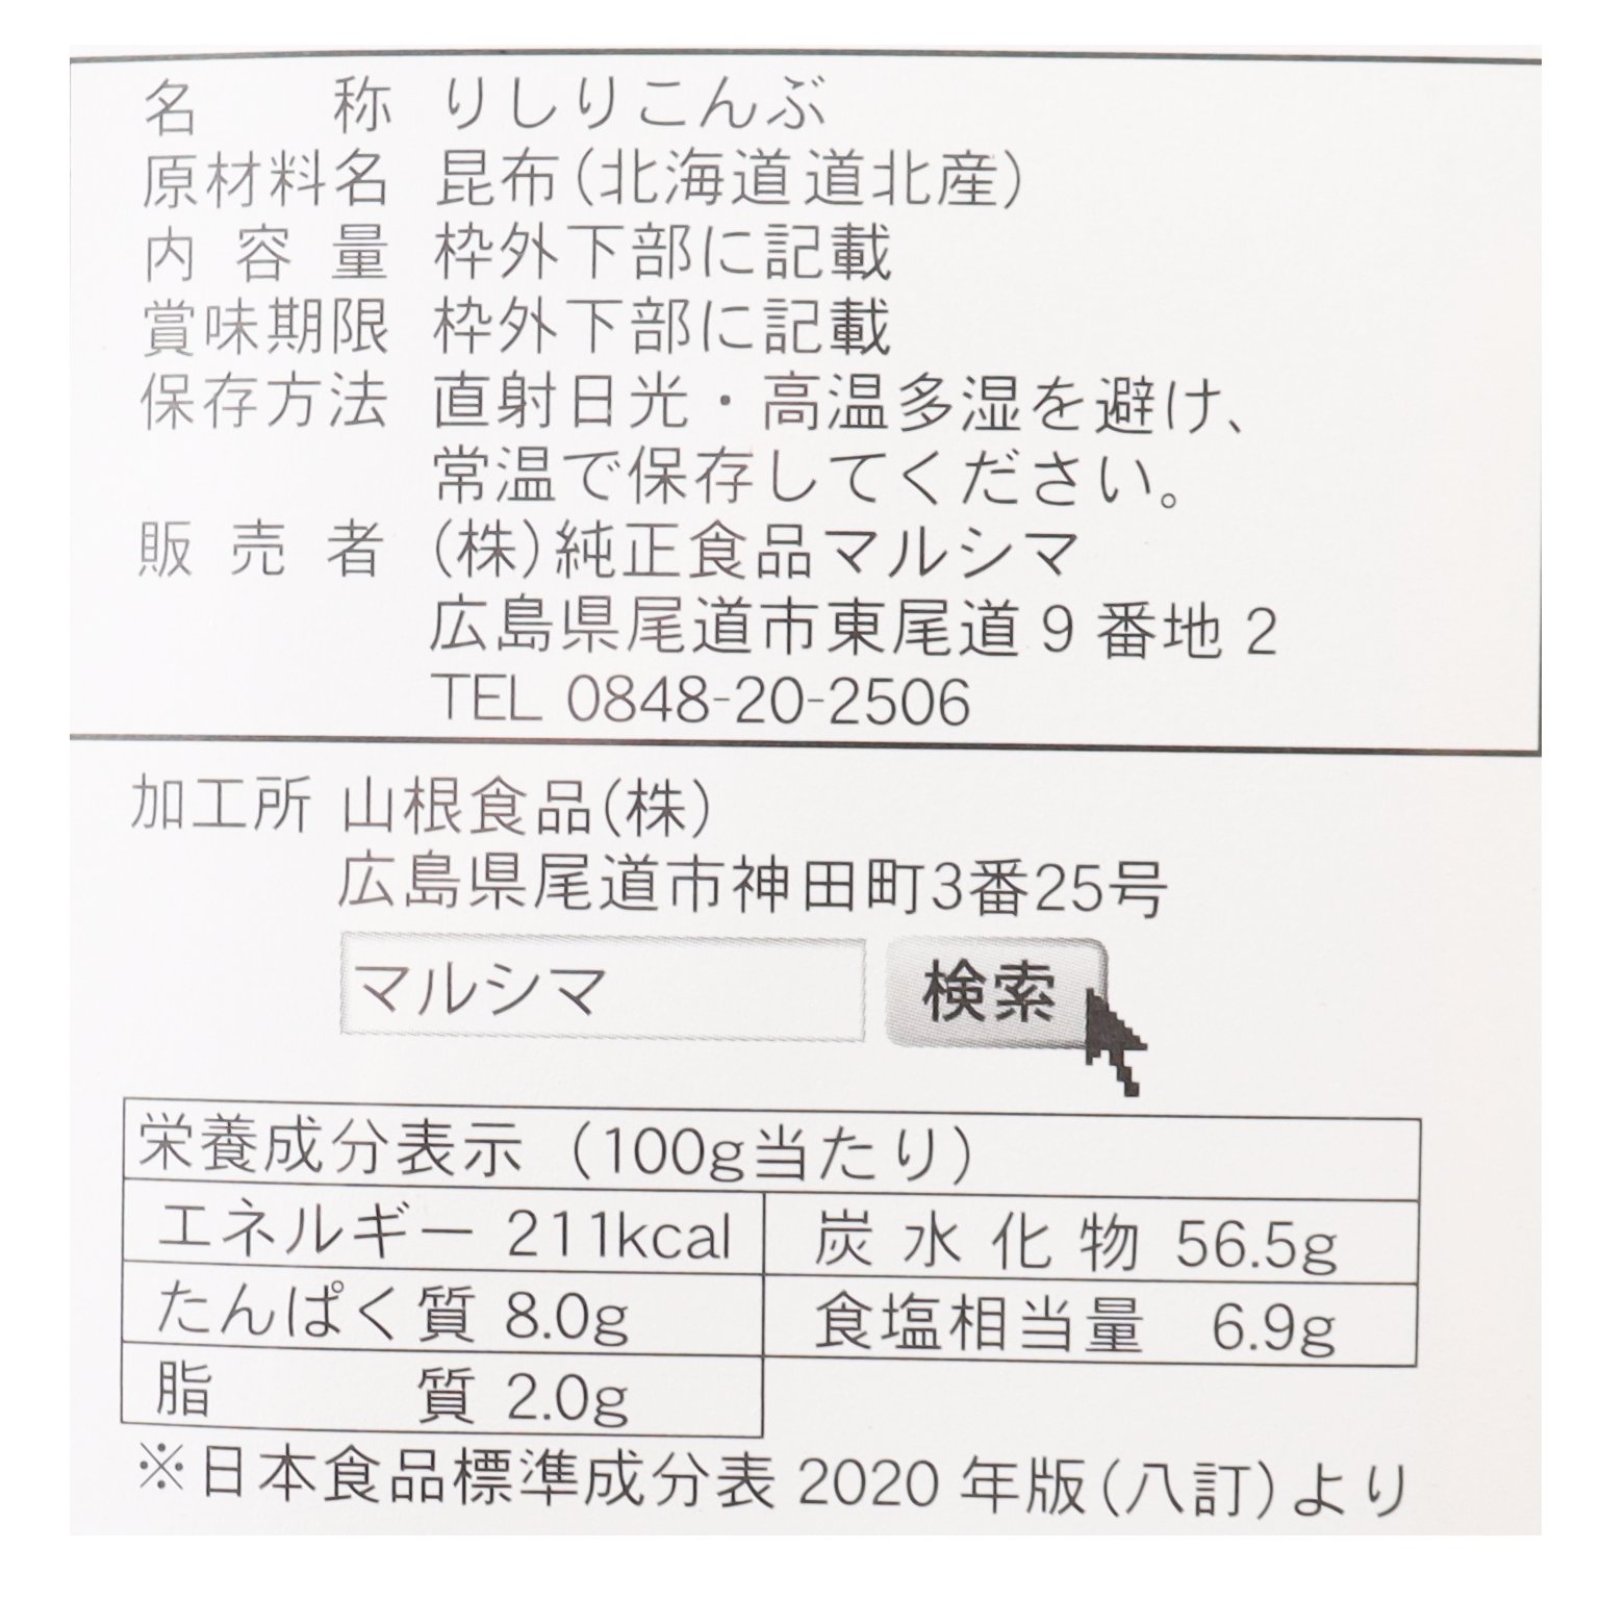 名称 りしりこんぶ
原材料名 昆布(北海道道北産)
内容量 枠外下部に記載
賞味期限 枠外下部に記載
保存方法 直射日光・高温多湿を避け、
常温で保存してください。
販売者 (株)純正食品マルシマ
広島県尾道市東尾道9番地2
TEL 0848-20-2506
加工所 山根食品(株)
広島県尾道市神田町3番25号
マルシマ 検索
栄養成分表示（100g当たり）
エネルギー 211kcal 炭水化物 56.5g
たんぱく質 8.0g 食塩相当量 6.9g
脂質 2.0g
※日本食品標準成分表2020年版(八訂)より